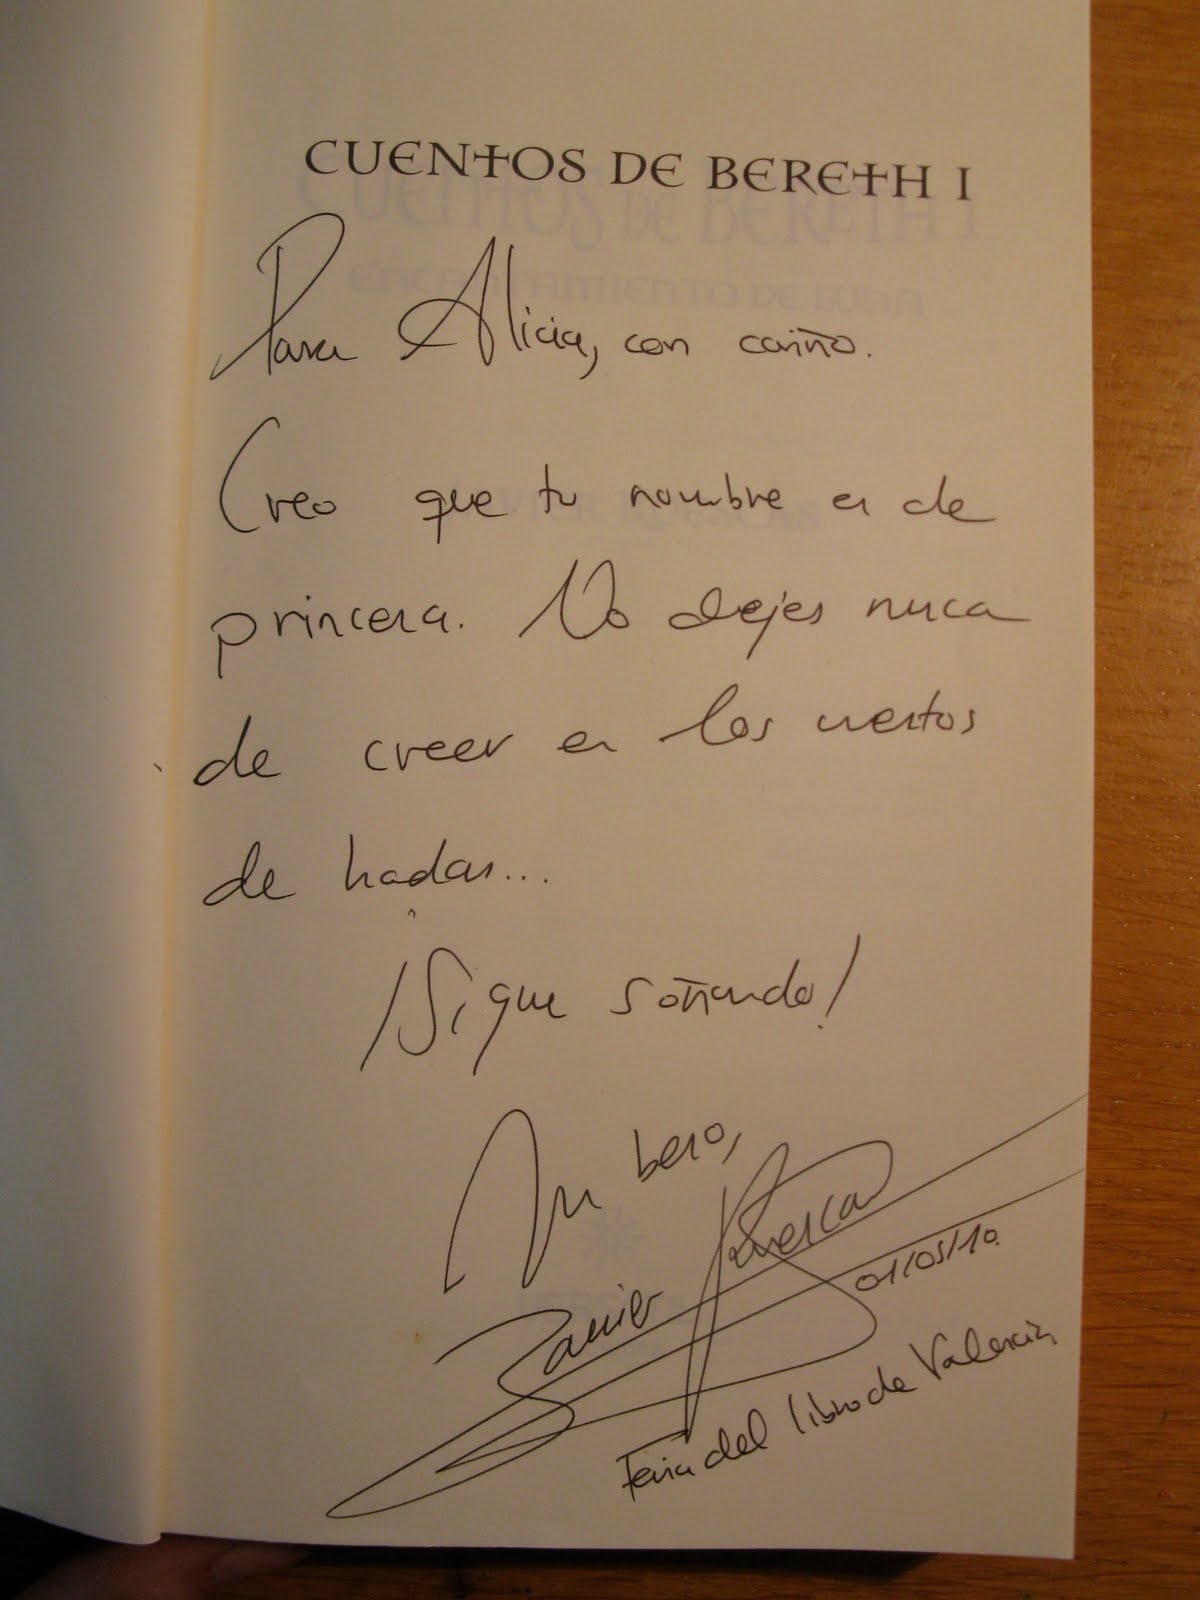 CUENTOS DE BERETH I
Para Alicia, con cariño.
Creo que tu nombre es de
princesa. No dejes nuca
de creer en los cuentos
de hadas...
¡Sigue soñando!
Un beso,
Javier Ruescas
01/05/10.
Feria del libro de Valencia
CUENTOS DE BERETH I
ENCANTAMIENTO DE LUNA
JAVIER RUESCAS